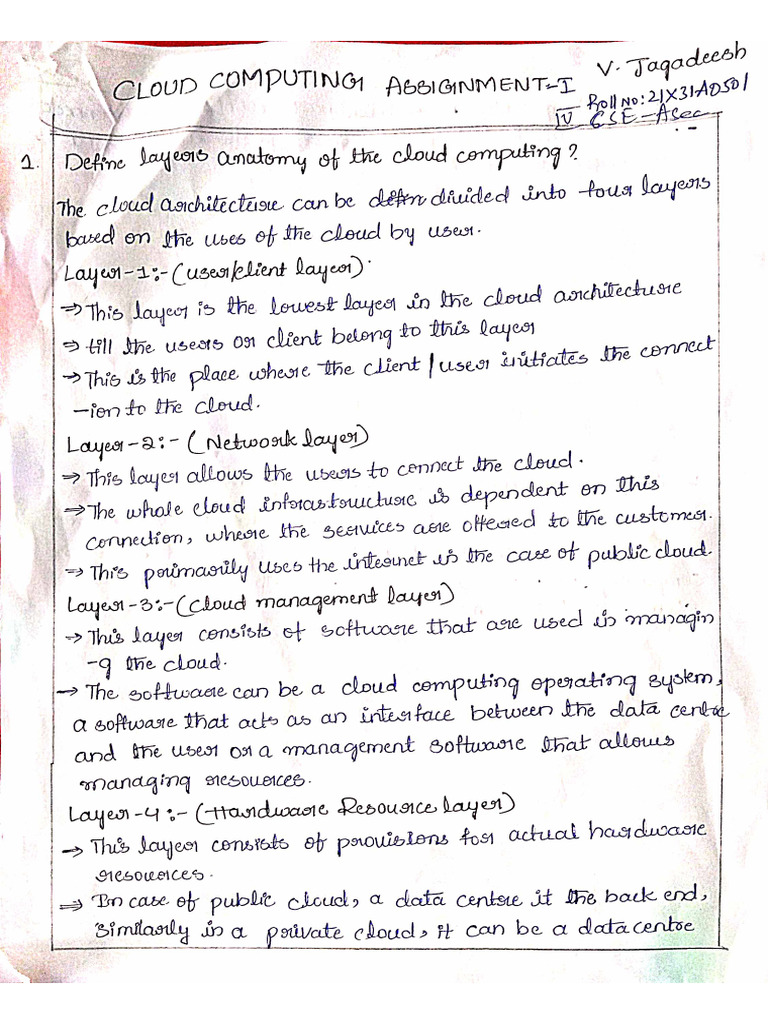 CLOUD COMPUTING ASSIGNMENT-I
V. Jagadeesh
Roll No: 21X31A0501
IV CSE-Asec
1. Define layers anatomy of the cloud computing?
The cloud architecture can be divided into four layers
based on the uses of the cloud by user.
Layer-1:-(user/client layer).
⇒ This layer is the lowest layer in the cloud architecture
⇒ till the users or client belong to this layer
→ This is the place where the client/user initiates the connect
-ion to the cloud.
Layer-2:- (Network layer)
→ This layer allows the users to connect the cloud.
⇒ The whole cloud infrastructure is dependent on this
connection, where the services are offered to the customer.
⇒ This primarily uses the internet is the case of public cloud.
Layer-3:-(Cloud management layer)
→ This layer consists of software that are used is managin
-g the cloud.
→ The software can be a cloud computing operating system,
a software that acts as an interface between the data centre
and the user or a management software that allows
managing resources.
Layer-4:- (Hardware Resource layer)
→ This layer consists of provisions for actual hardware
resources.
⇒ In case of public cloud, a data centre it the back end,
similarly in a private cloud, it can be a data centre